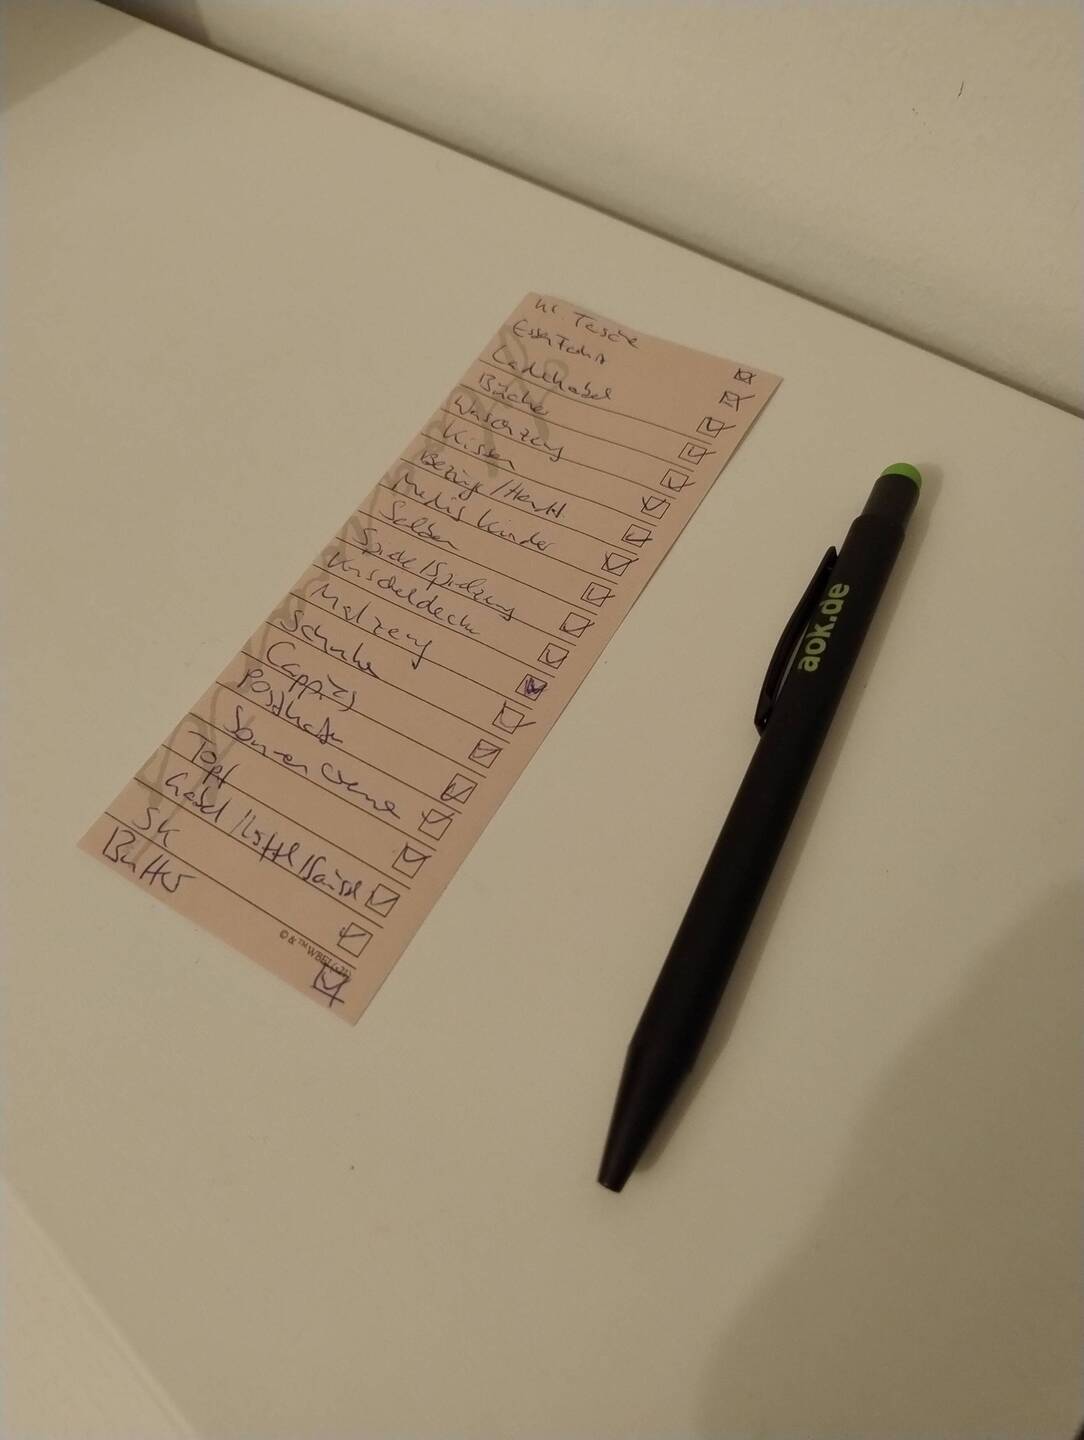 kl. Tasche
Essen Fahrt
Ladekabel
Bücher
Waschzeug
Kissen
Bezüge / Handt.
Medis Kinder
Salben
Spiele / Spielzeug
Kuscheldecke
Malzeug
Schuhe
Cappies
Sonnencreme
Topf
Gabel / Löffel /
SK
Butter
© & ™ WBEI
aok.de